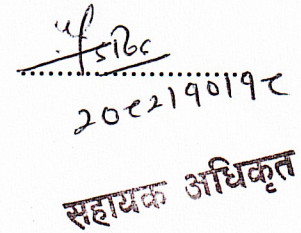 २०८२।१०।१८
सहायक अधिकृत